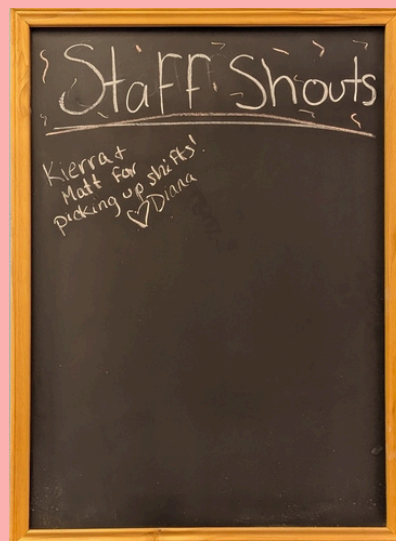 Staff Shouts
Kierra +
Matt for
picking up shifts!
♡ Diana